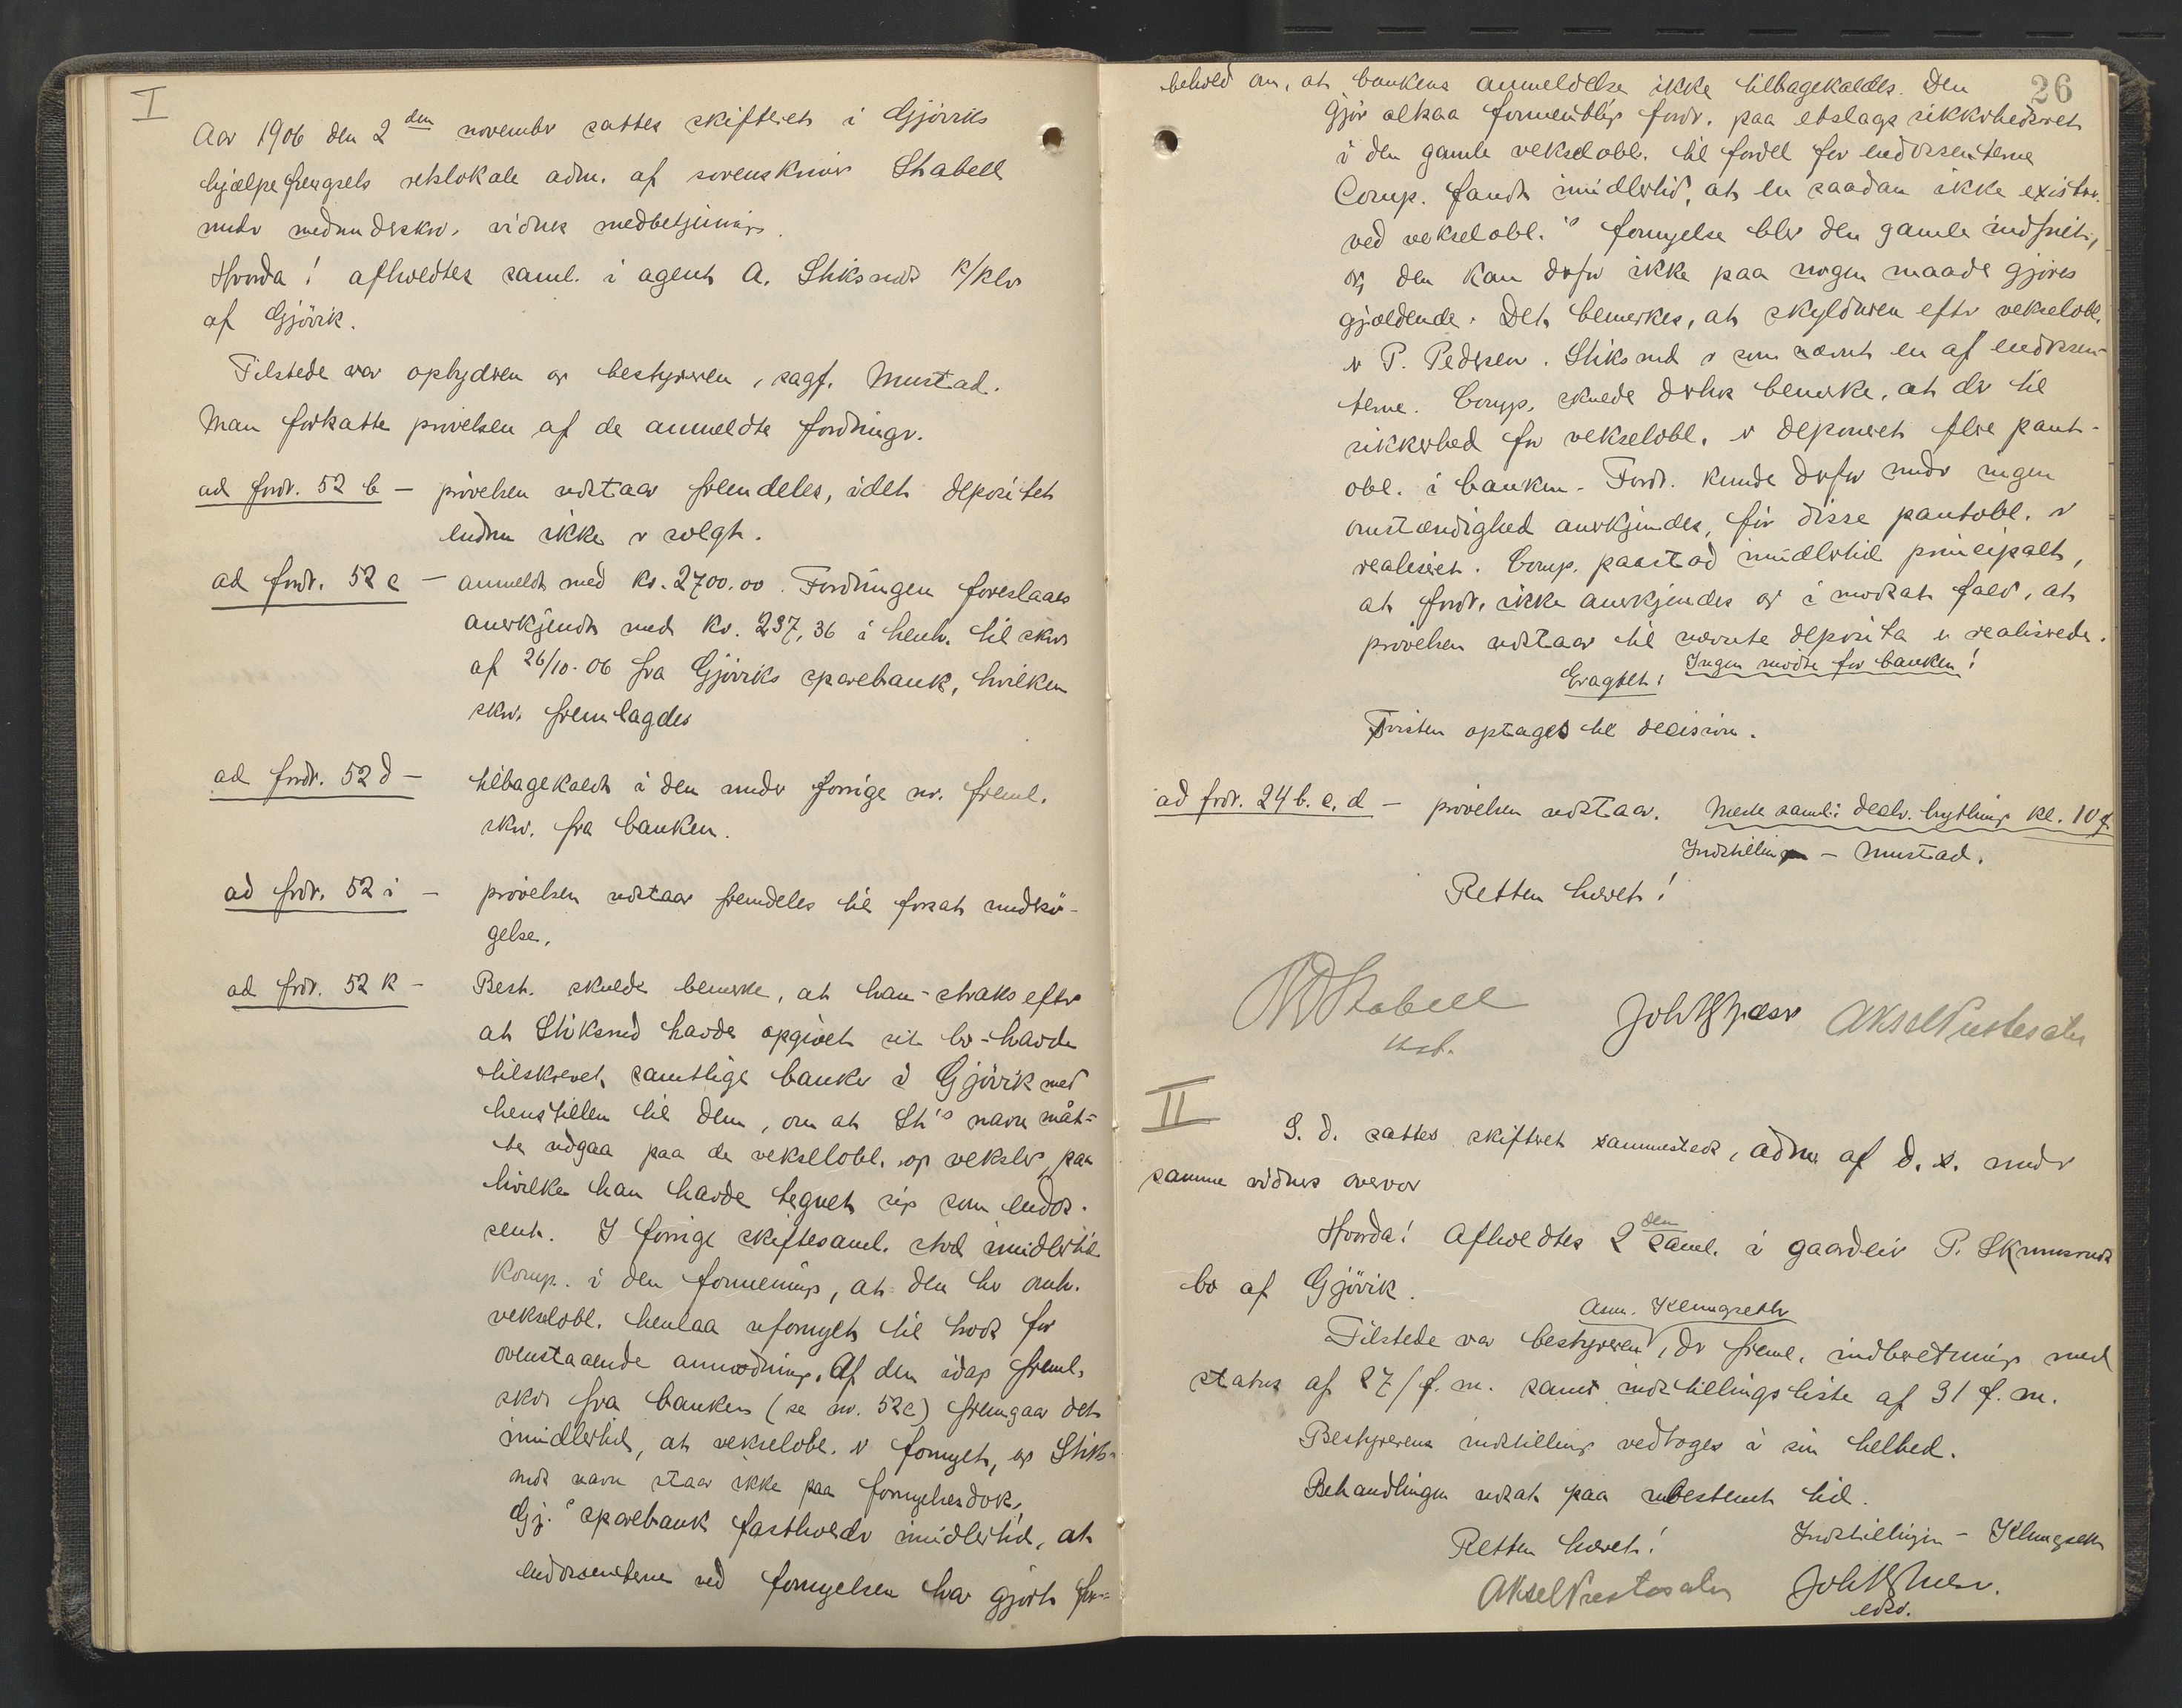 I
Aar 1906 den 2 den novembr sattes skifteret i Gjöviks
hjælpefængsels retslokale adm. af sorenskriver Stabell
undr medundrskr. vidnes medbetjening.
Hvorda! afholdtes saml. i agent A. Stiksruds k/klos
af Gjövik.
Tilstede var opbyderen og bestyreren, sagf. Mustad.
Man fortsatte prøvelsen af de anmeldte fordringr.
ad fordr. 52 b — prøvelsen udstaar fremdeles, idet depositet
endnu ikke er solgt.
ad fordr. 52 c — anmeldt med kr. 2700.00. Fordringen foreslaaes
anerkjendt med kr. 237,36 i henh. til skr.
af 26/10-06 fra Gjöviks sparebank, hvilken
skr. fremlagdes
ad fordr. 52 d — tilbagekaldt i den under forrige nr. freml.
skr. fra banken.
ad fordr. 52 i — prøvelsen udstaar fremdeles til forsat undersö-
gelse.
ad fordr. 52 k — Best. skulde bemerke, at han - straks efter
at Stiksrud havde opgivet sit bo - havde
tilskrevet samtlige banker i Gjövik med
henstillen til dem, om at St's navn måt-
te udgaa paa de vekselobl. og veksler, paa
hvilke han havde tegnet sig som endos-
sent. I forrige skiftesaml. stod imidlertid
komp. i den formening, at den her omh.
vekselobl. henlaa ufornyet til trods for
ovenstaaende anmodning. Af den idag freml.
skr. fra banken (se nr. 52c) fremgaar det
imidlertid, at vekselobl. er fornyet, og Stiks-
ruds navn staar ikke paa fornyelsesdok.
Gj.s sparebank fastholder imidlertid, at
endossenterne ved fornyelsen har gjort for-
26
behold om, at bankens anmeldelse ikke tilbagekaldes. Den
gjør altsaa formentlig fordr. paa etslags sikkerhedsret
i den gamle vekselobl. til fordel for endossenterne
Comp. fandt imidlertid, at en saadan ikke existerer.
ved vekselobl.'s fornyelse blev den gamle indfriet,
og den kan derfor ikke paa nogen maade gjøres
gjældende. Det bemerkes, at skyldneren efter vekselobl.
er P. Pedersen. Stiksrud er som nævnt en af endossen-
terne. Comp. skulde derhos bemerke, at der til
sikkerhed for vekselobl. er deponeret flere pant-
obl. i banken. Fordr. kunde derfor under ingen
omstændighed anerkjendes, før disse pantobl. er
realiseret. Comp. paastod imidlertid principalt,
at fordr. ikke anerkjendes og i modsat fald, at
prøvelsen udstaar til nævnte deposita er realiserede.
Eragtet: Ingen mødte for banken!
Tvisten optages til decision.
ad fordr. 24 b. c. d — prøvelsen udstaar. Neste saml: dealr. brytning kl. 10 f.
Indstilling — Mustad.
Retten hævet!
Stabell
Aksel Prestesæter
II
S. d. sattes skifteret sammesteds, adm. af d. s. under
samme vidners overvær
Hvorda! Afholdtes 2 den saml. i gaardeier P. Skrinsruds
bo af Gjövik.
Asm. Klungseth
Tilstede var bestyreren, der freml. indberetning med
status af 27/f. m. samt indstillingsliste af 31 f. m.
Bestyrerens indstilling vedtoges i sin helhed.
Behandlingen udsat paa ubestemt tid.
Retten hævet! Indstillingen — Klungseth
Aksel Prestesæter